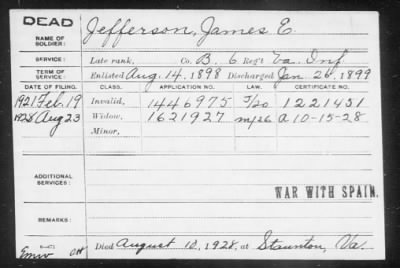 DEAD
NAME OF SOLDIER: Jefferson, James E.
SERVICE: Late rank, Co. B. 6 Reg't Va. Inf.
TERM OF SERVICE: Enlisted Aug. 14. 1898 Discharged Jan. 26. 1899
DATE OF FILING. CLASS. APPLICATION NO. LAW. CERTIFICATE NO.
1921 Feb. 19 Invalid, 1446975 J/20 1221451
1928 Aug 23 Widow, 1621927 m/26 A 10-15-28.
Minor,
ADDITIONAL SERVICES:
WAR WITH SPAIN.
REMARKS:
Died August 10, 1928, at Staunton, Va.